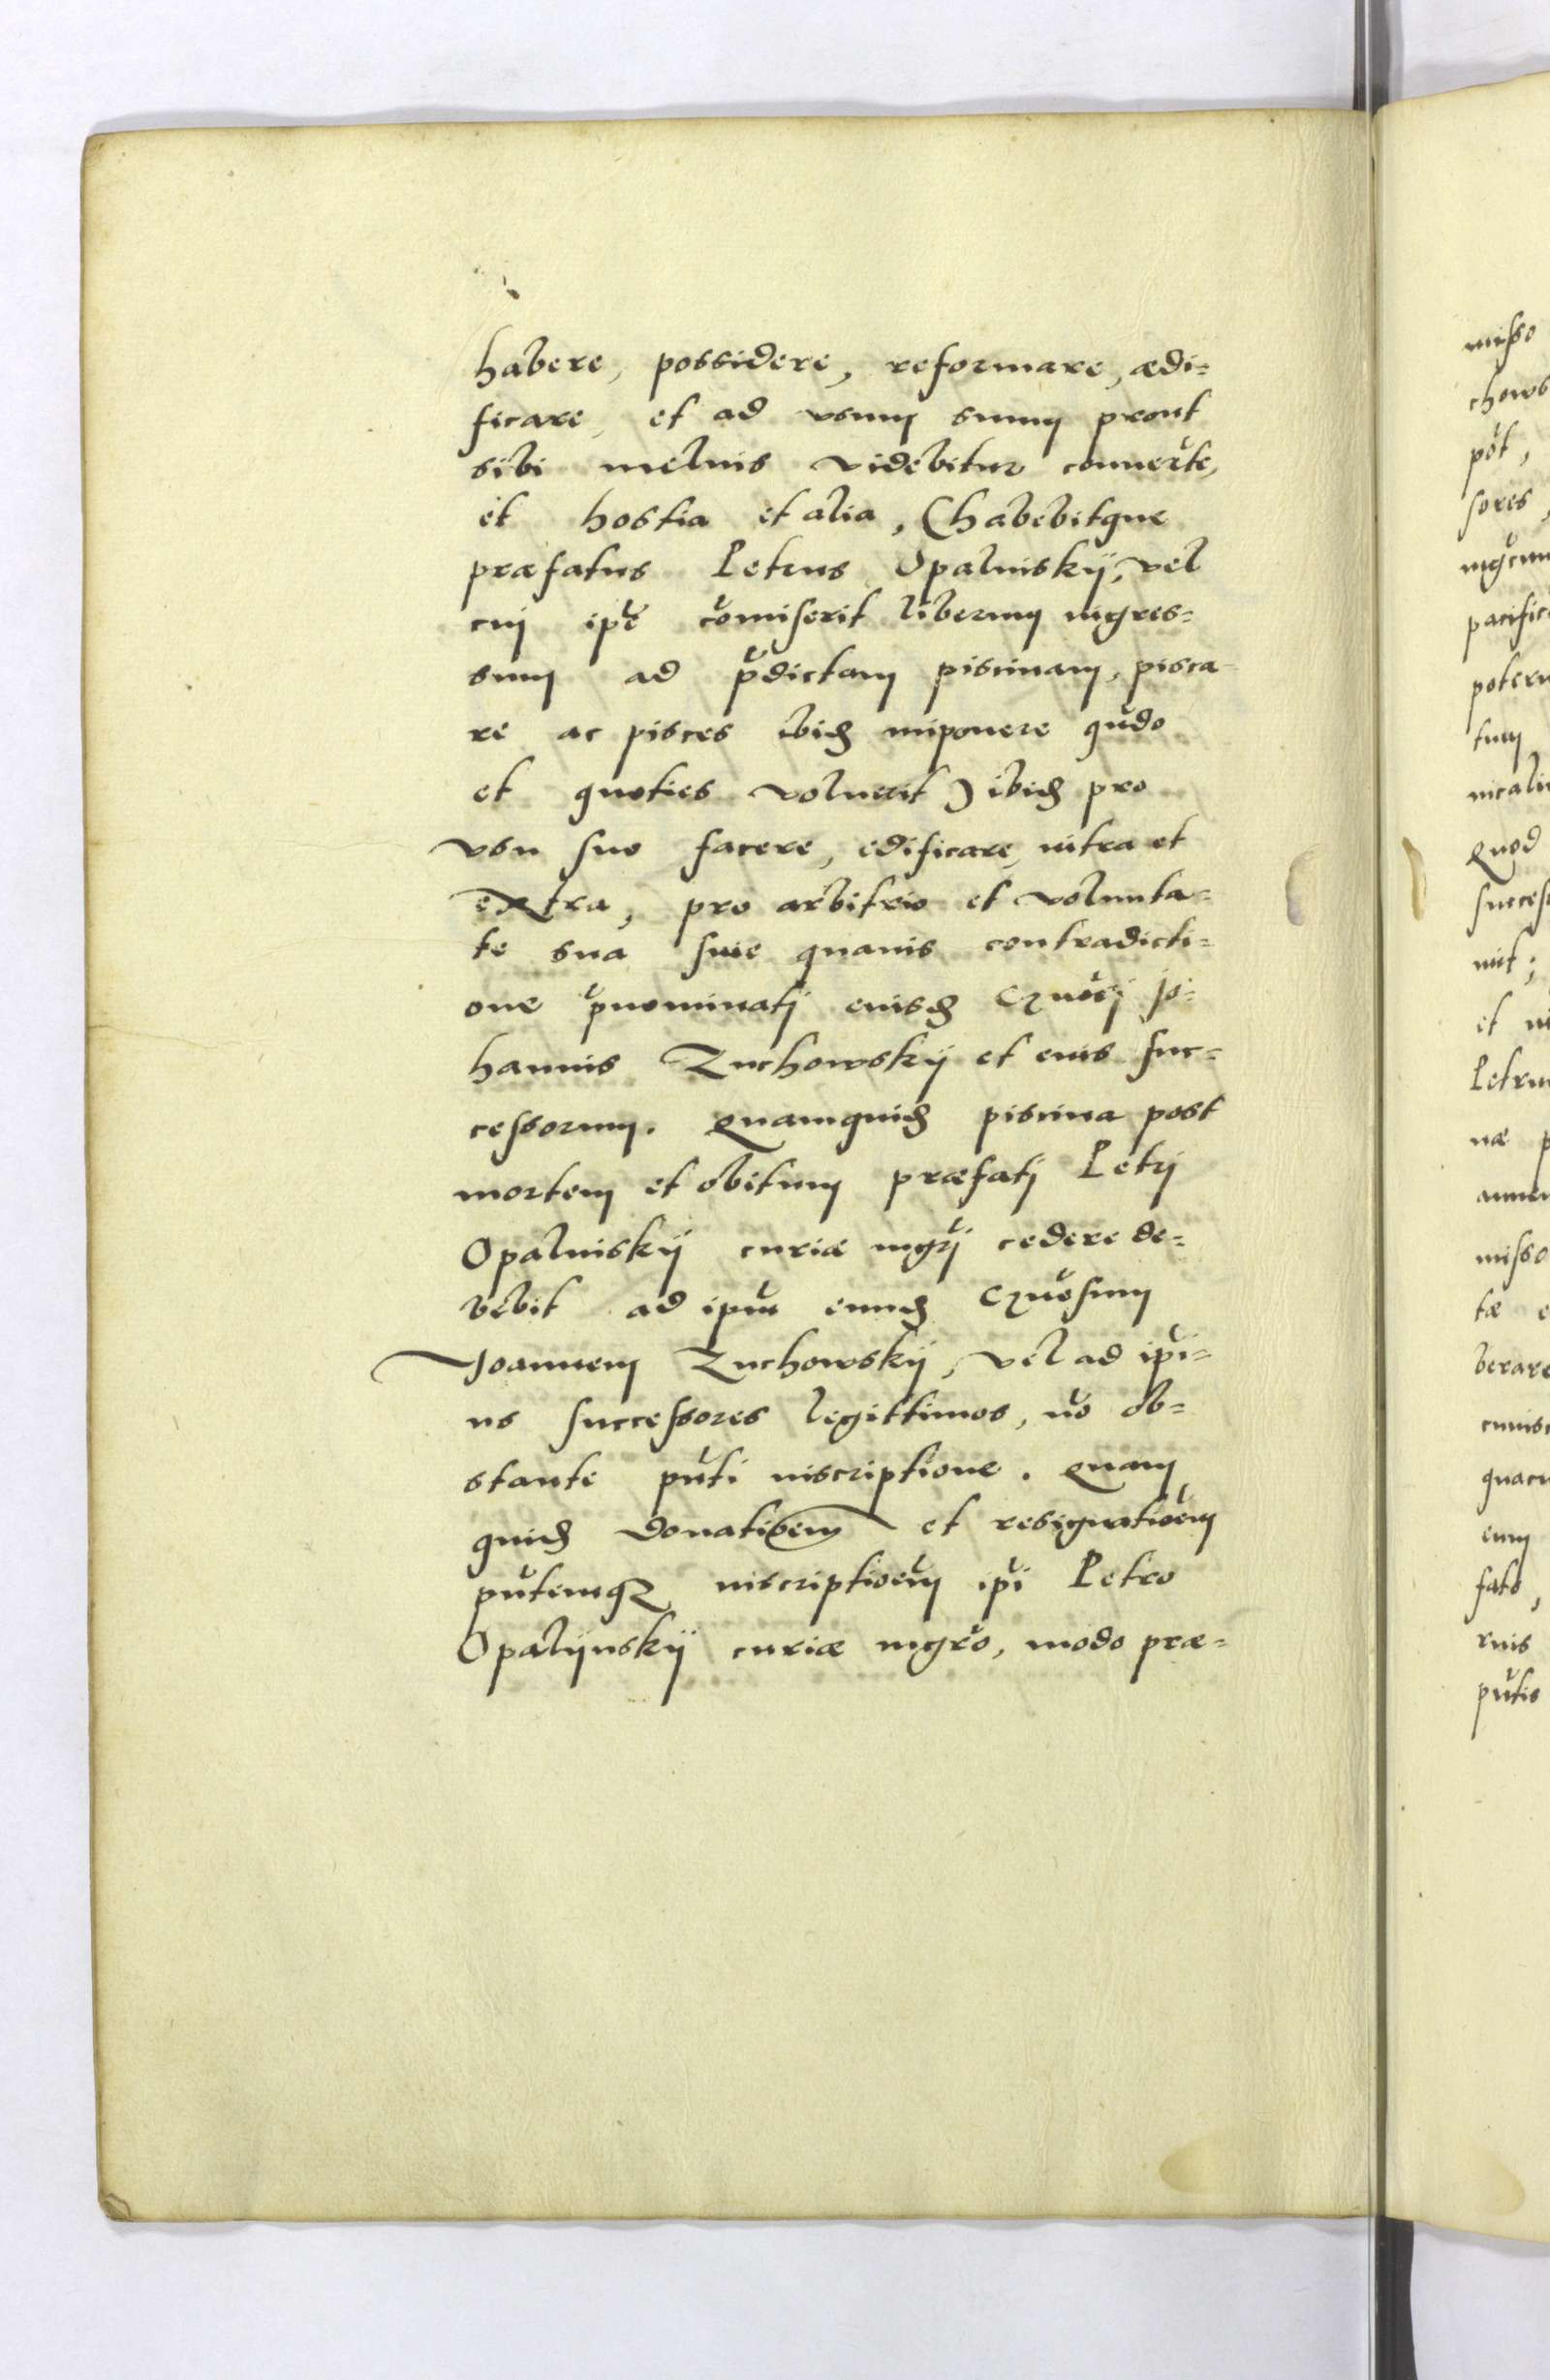 habere, possidere, reformare, ædi=
ficare, et ad vsum suum prout
sibi melius videbitur conuerte,
et hostia et alia, (habebitque
præfatus Petrus Opalinskij, vel
cuj ipe comiserit liberum ingres=
sum ad pdictam piscinam, pisca-
re ac pisces ibid imponere qudo
et quoties voluerit) ibid pro
vsu suo facere, edificare, intra et
extra, pro arbitrio et volunta=
te sua siue quauis contradicti=
one pnominatj eiusd Gnosj Jo=
hannis Zuchowskij et eius suc=
cessorum. Quamquid piscina post
mortem et obitum præfatj Petrj
Opalinskij curiæ mgrj cedere de=
bebit ad ipm eund Gnosum
Joannem Zuchowskij, vel ad ipi=
us successores legittimos, no ob=
stante pnti inscriptione. Quam
quid donatioem et resignatioem
pntemq inscriptioem ipi Petro
Opalijnskij curiæ mgro, modo præ=
misso
chows
pot,
sores,
pacific
tum
Quod
succes
et
Petru
næ p
misso
tæ e
berare
eum
fato,
pntis